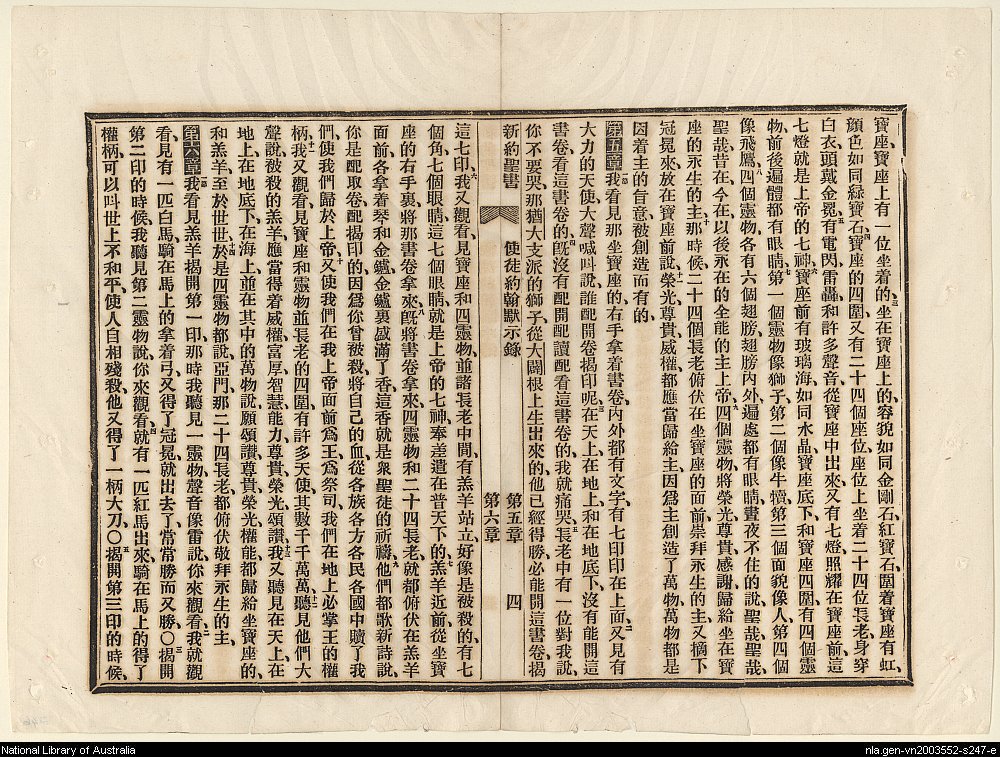 寶座、寶座上有一位坐着的、三坐在寶座上的、容貌如同金剛石紅寶石、圍着寶座有虹、
顏色如同綠寶石、四寶座的四圍、又有二十四個座位、座位上坐着二十四位長老、身穿
白衣、頭戴金冕、五有電閃雷轟、和許多聲音、從寶座中出來、又有七燈照耀在寶座前、這
七燈就是上帝的七神、六寶座前有玻璃海、如同水晶、寶座底下、和寶座四圍、有四個靈
物、前後遍體都有眼睛、七第一個靈物像獅子、第二個像牛犢、第三個面貌像人、第四個
像飛鷹、八四個靈物各有六個翅膀、翅膀內外遍處都有眼睛、晝夜不住的說、聖哉、聖哉、
聖哉、昔在今在以後永在的全能的主上帝、九四個靈物將榮光尊貴感謝、歸給坐在寶
座的永生的主、十那時候二十四個長老、俯伏在坐寶座的面前、崇拜永生的主、又摘下
冠冕來放在寶座前說、十一榮光尊貴威權、都應當歸給主、因爲主創造了萬物、萬物都是
因着主的旨意被創造而有的、
第五章一節我看見那坐寶座的、右手拿着書卷、內外都有文字、有七印印在上面、二又見有
大力的天使、大聲喊叫說、誰配開卷揭印呢、三在天上在地上和在地底下、沒有能開這
書卷看這書卷的、四旣沒有配開配讀配看這書卷的、我就痛哭、五長老中有一位對我說、
你不要哭、那猶大支派的獅子、從大闢根上生出來的、他已經得勝、必能開這書卷、揭
新約聖書 使徒約翰默示錄 第五章 第六章 四
這七印、六我又觀看、見寶座和四靈物、並諸長老中間、有羔羊站立、好像是被殺的、有七
個角、七個眼睛、這七個眼睛就是上帝的七神、奉差遣在普天下的、七羔羊近前、從坐寶
座的右手裏、將那書卷拿來、八旣將書卷拿來、四靈物和二十四長老、就都俯伏在羔羊
面前、各拿着琴、和金鑪、金鑪裏盛滿了香、這香就是衆聖徒的祈禱、九他們都歌新詩說、
你是配取卷配揭印的、因爲你曾被殺、將自己的血、從各族各方各民各國中贖了我
們、使我們歸於上帝、十又使我們在我上帝面前、爲王爲祭司、我們在地上必掌王的權
柄、十一我又觀看、見寶座和靈物並長老的四圍、有許多天使、其數千千萬萬、十二聽見他們大
聲說、被殺的羔羊、應當得着威權富厚智慧能力尊貴榮光頌讚、十三我又聽見在天上在
地上在地底下在海上、並在其中的萬物說、願頌讚尊貴榮光權能、都歸給坐寶座的、
和羔羊、至於世世、十四於是四靈物都說、亞門、那二十四長老都俯伏敬拜永生的主、
第六章一節我看見羔羊揭開第一印、那時我聽見一靈物聲音像雷說、你來觀看、二我就觀
看、見有一匹白馬、騎在馬上的拿着弓、又得了冠冕、就出去了、常常勝而又勝、〇三揭開
第二印的時候、我聽見第二靈物說、你來觀看、四就有一匹紅馬出來、騎在馬上的得了
權柄、可以叫世上不和平、使人自相殘殺、他又得了一柄大刀、〇五揭開第三印的時候、
National Library of Australia
nla.gen-vn2003552-s247-e